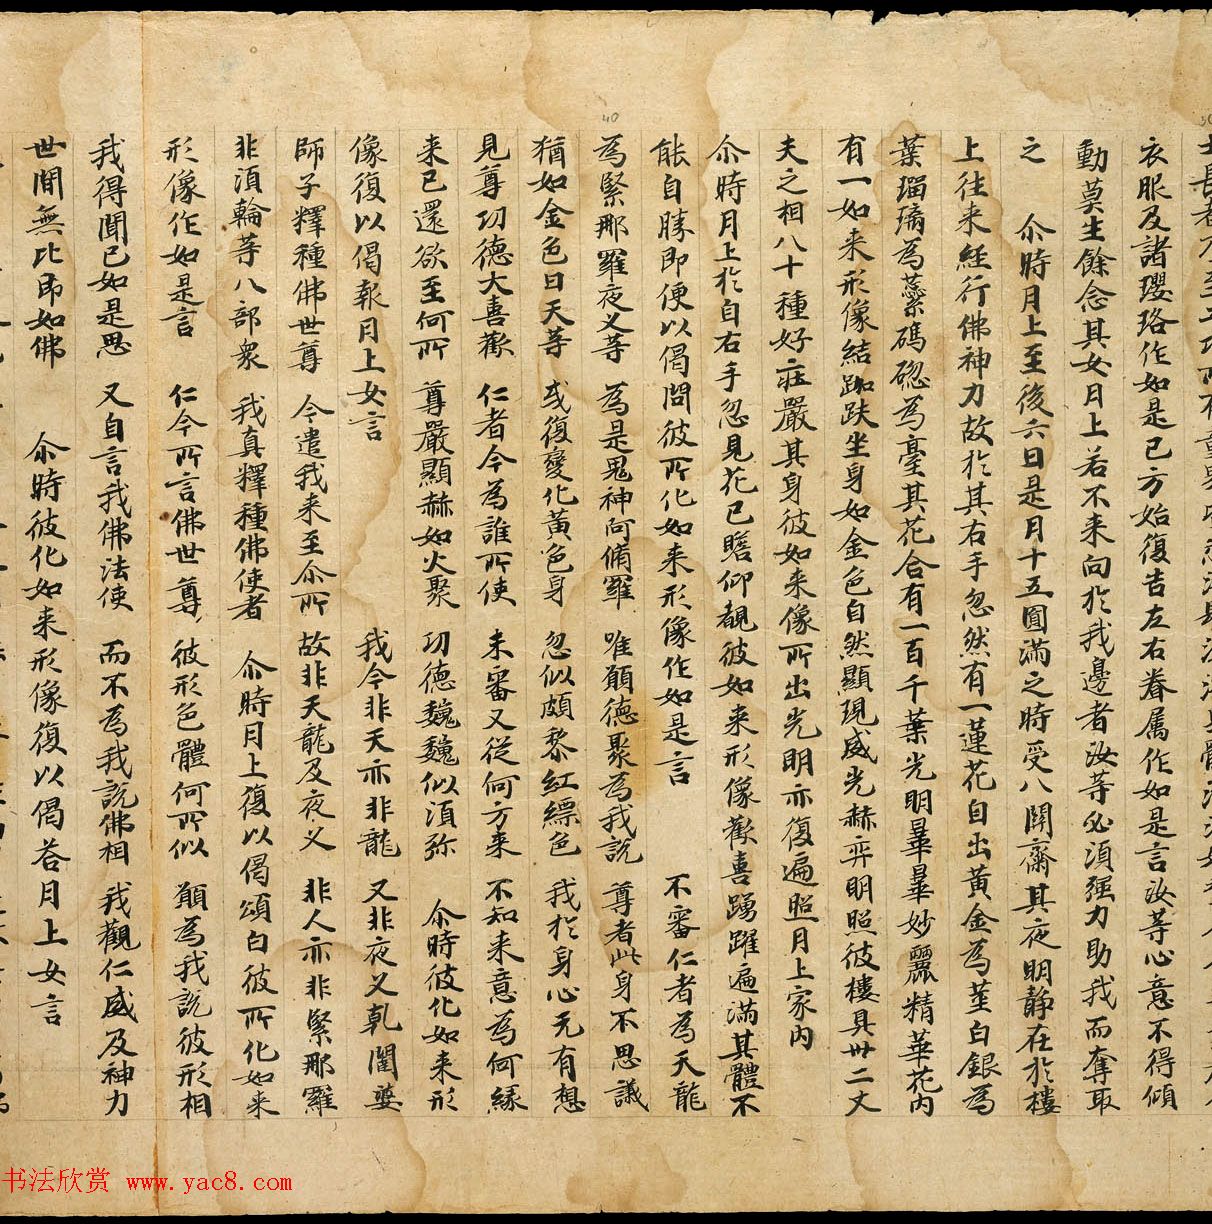 衣服及諸瓔珞作如是已方始復告左右眷属作如是言汝等心意不得傾
動莫生餘念其女月上若不来向於我邊者汝等必須强力助我而奪取
之 尒時月上至後六日是月十五圓滿之時受八關齋其夜明静在於樓
上往来經行佛神力故於其右手忽然有一蓮花自出黃金為莖白銀為
葉瑠璃為蘂碼碯為臺其花合有一百千葉光明曅曅妙麗精華花内
有一如来形像結跏趺坐身如金色自然顯現威光赫弈明照彼樓具卅二丈
夫之相八十種好莊嚴其身彼如来像所出光明亦復遍照月上家内
尒時月上於自右手忽見花已瞻仰覩彼如来形像歡喜踴躍遍滿其體不
能自勝即便以偈問彼所化如来形像作如是言 不審仁者為天龍
為緊那羅夜叉等 為是鬼神阿脩羅 唯願德聚為我說 尊者此身不思議
猶如金色日天等 或復變化黃色身 忽似頗黎紅縹色 我於身心无有想
見尊功德大喜歡 仁者今為誰所使 未審又從何方来 不知来意為何緣
来已還欲至何所 尊嚴顯赫如火聚 功德巍巍似須弥 尒時彼化如来形
像復以偈報月上女言 我今非天亦非龍 又非夜叉乾闥婆
師子釋種佛世尊 今遣我来至尒所 故非天龍及夜叉 非人亦非緊那羅
非須輪等八部衆 我真釋種佛使者 尒時月上復以偈頌白彼所化如来
形像作如是言 仁今所言佛世尊 彼形色體何所似 願為我說彼形相
我得聞已如是思 又自言我佛法使 而不為我說佛相 我觀仁威及神力
世間無比即如佛 尒時彼化如来形像復以偈荅月上女言
40
书法欣赏 www.yac8.com